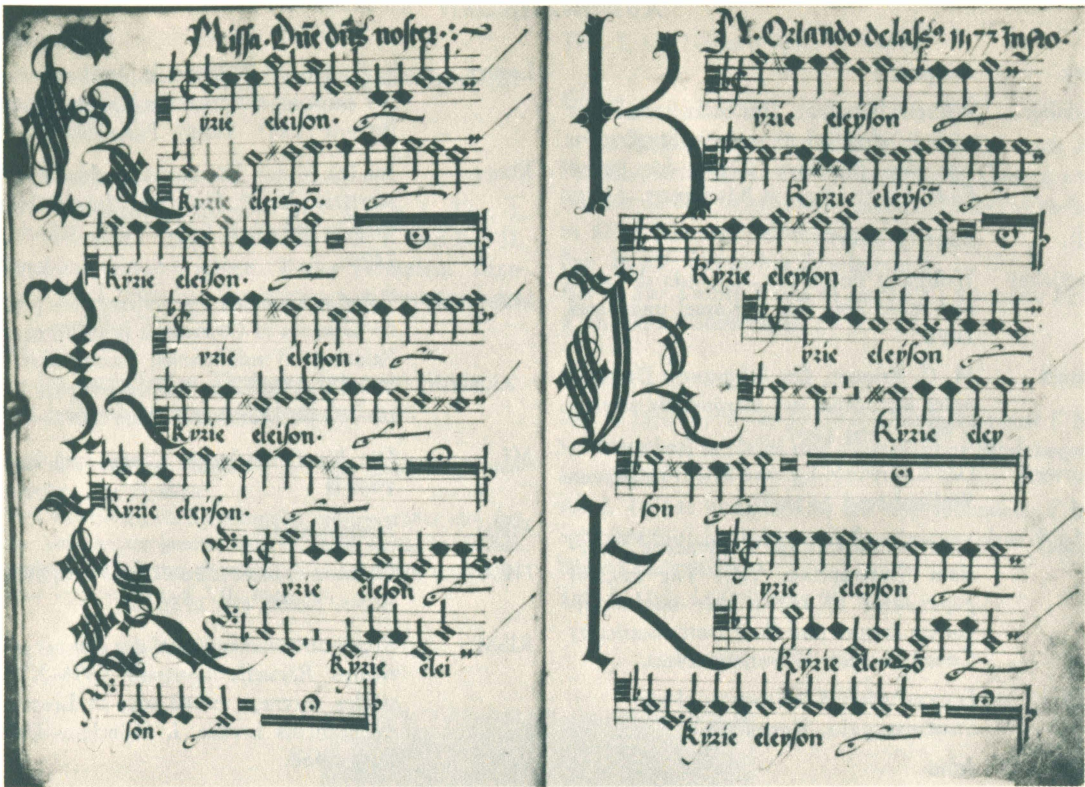 Missa. Dñe dñs noster.
Kyrie eleison.
Kyrie eleisō.
kyrie eleison.
Kyrie eleison.
Kyrie eleison.
Kyrie eleyson.
Kyrie eleson
Kyrie elei
son.
Orlando de
Kyrie eleyson
Kyrie eleysō
Kyrie eleyson
Kyrie eleyson
Kyrie eley
son
Kyrie eleyson
Kyrie eleysō
Kyrie eleyson